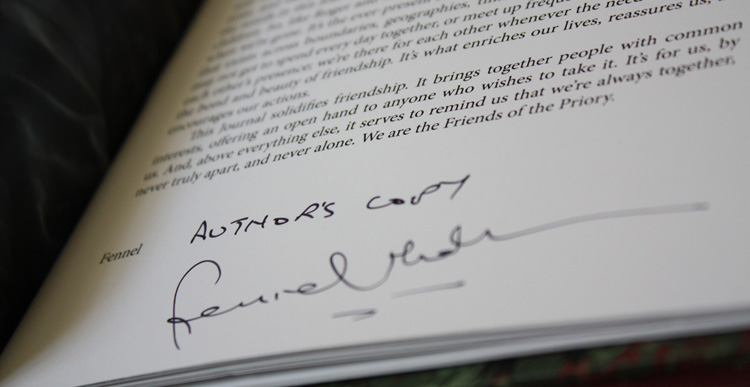 It's the ever-present
across boundaries, geographies,
not get to spend every day together, or meet up
each other's presence, we're there for each other whenever the
the bond and beauty of friendship. It's what enriches our lives, reassures us,
encourages our actions.
This Journal solidifies friendship. It brings together people with common
interests, offering an open hand to anyone who wishes to take it. It's for us, by
us. And, above everything else, it serves to remind us that we're always together,
never truly apart, and never alone. We are the Friends of the Priory.
AUTHOR'S COPY
Fennel
Fennel Hudson